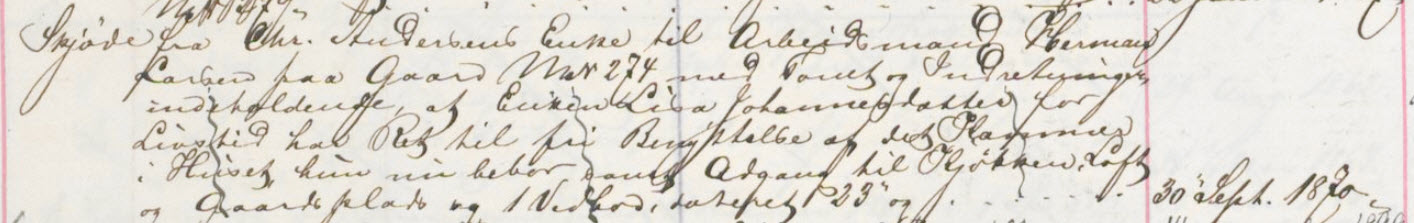 Skjøde fra Chr. Andersens Enke til Arbeidsmand Herman
Larsen paa Gaard MN 274 med Tomt og Indretninger,
indeholdende, at Enken Lisa Johannesdatter for
Livstid har Ret til fri Benyttelse af det Kammer
i Huset, hun nu bebor, samt Adgang til Kjøkken, Loft
og Gaardsplads og 1 Vedbod, dateret 23 og
30 Sept. 1870